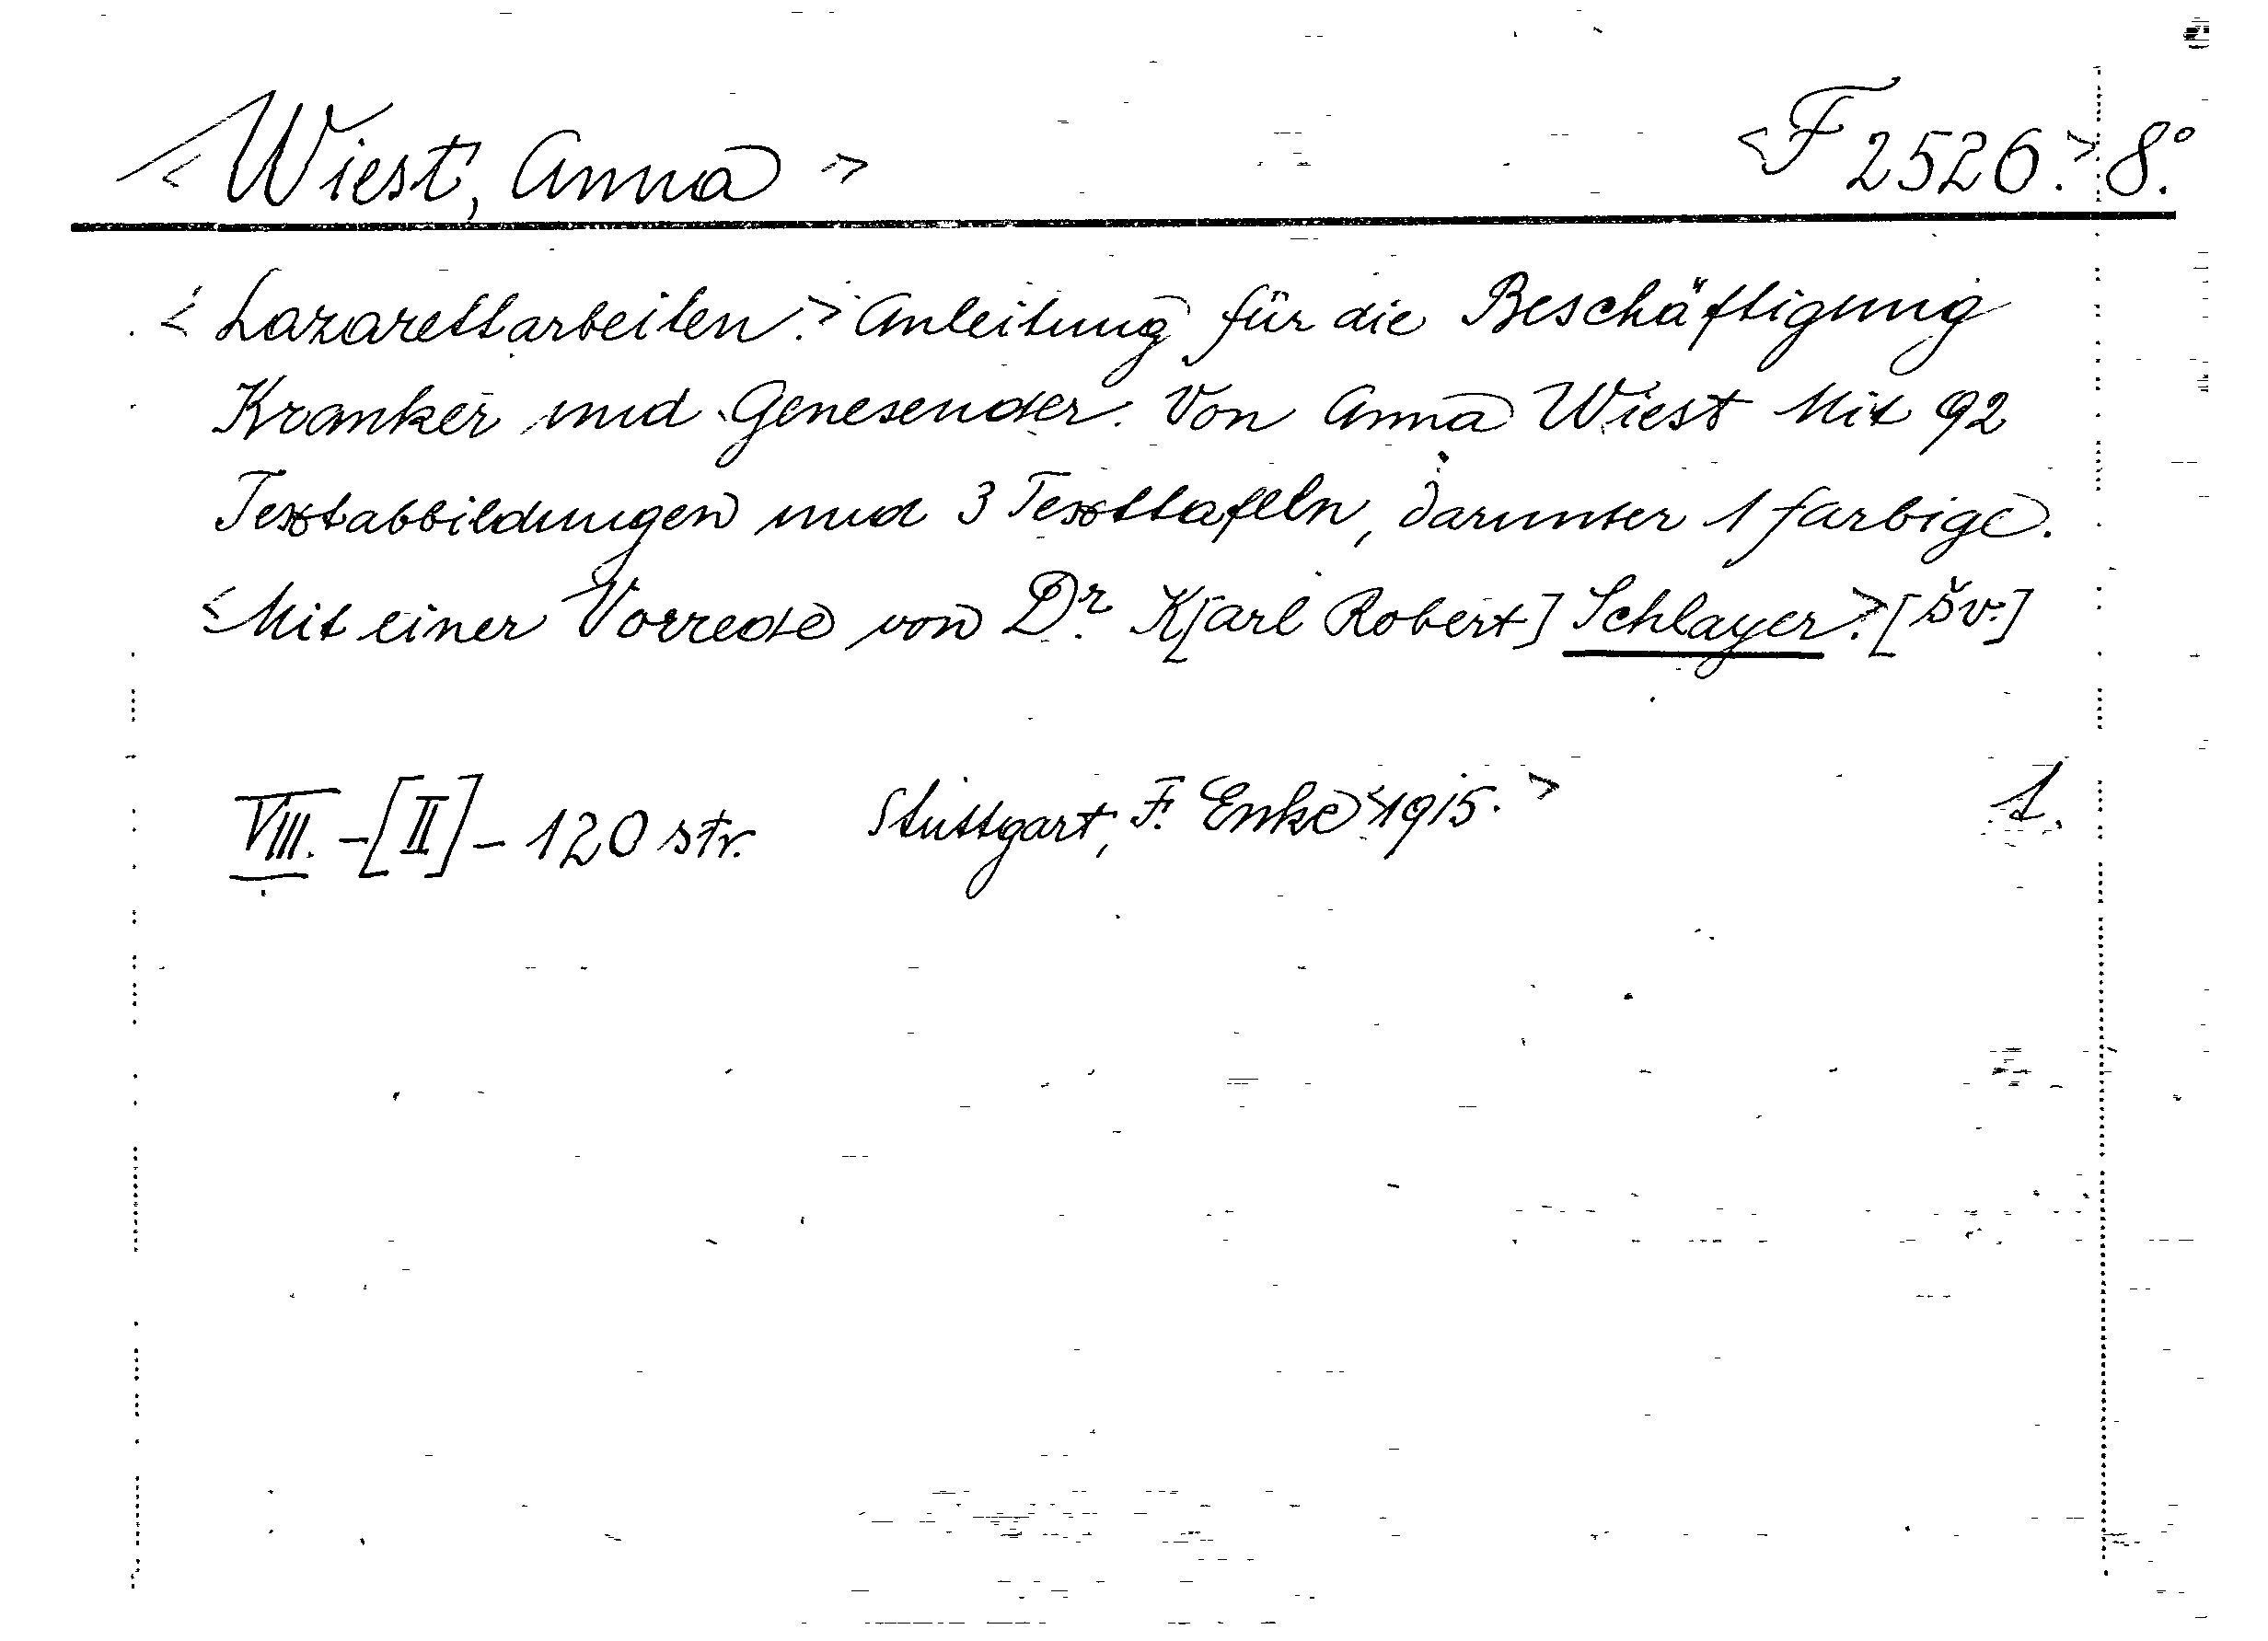 < Wiest, Anna > <F 2526.> 8.°
< Lazarettarbeiten.> Anleitung für die Beschäftigung
Kranker und Genesender. Von Anna Wiest Mit 92
Textabbildungen und 3 Texttafeln, darunter 1 farbige.
<Mit einer Vorrede von Dr. K[arl Robert] Schlayer.> [šv.]
VIII.-[II]-120 str. Stuttgart, F. Enke <1915.> 1.